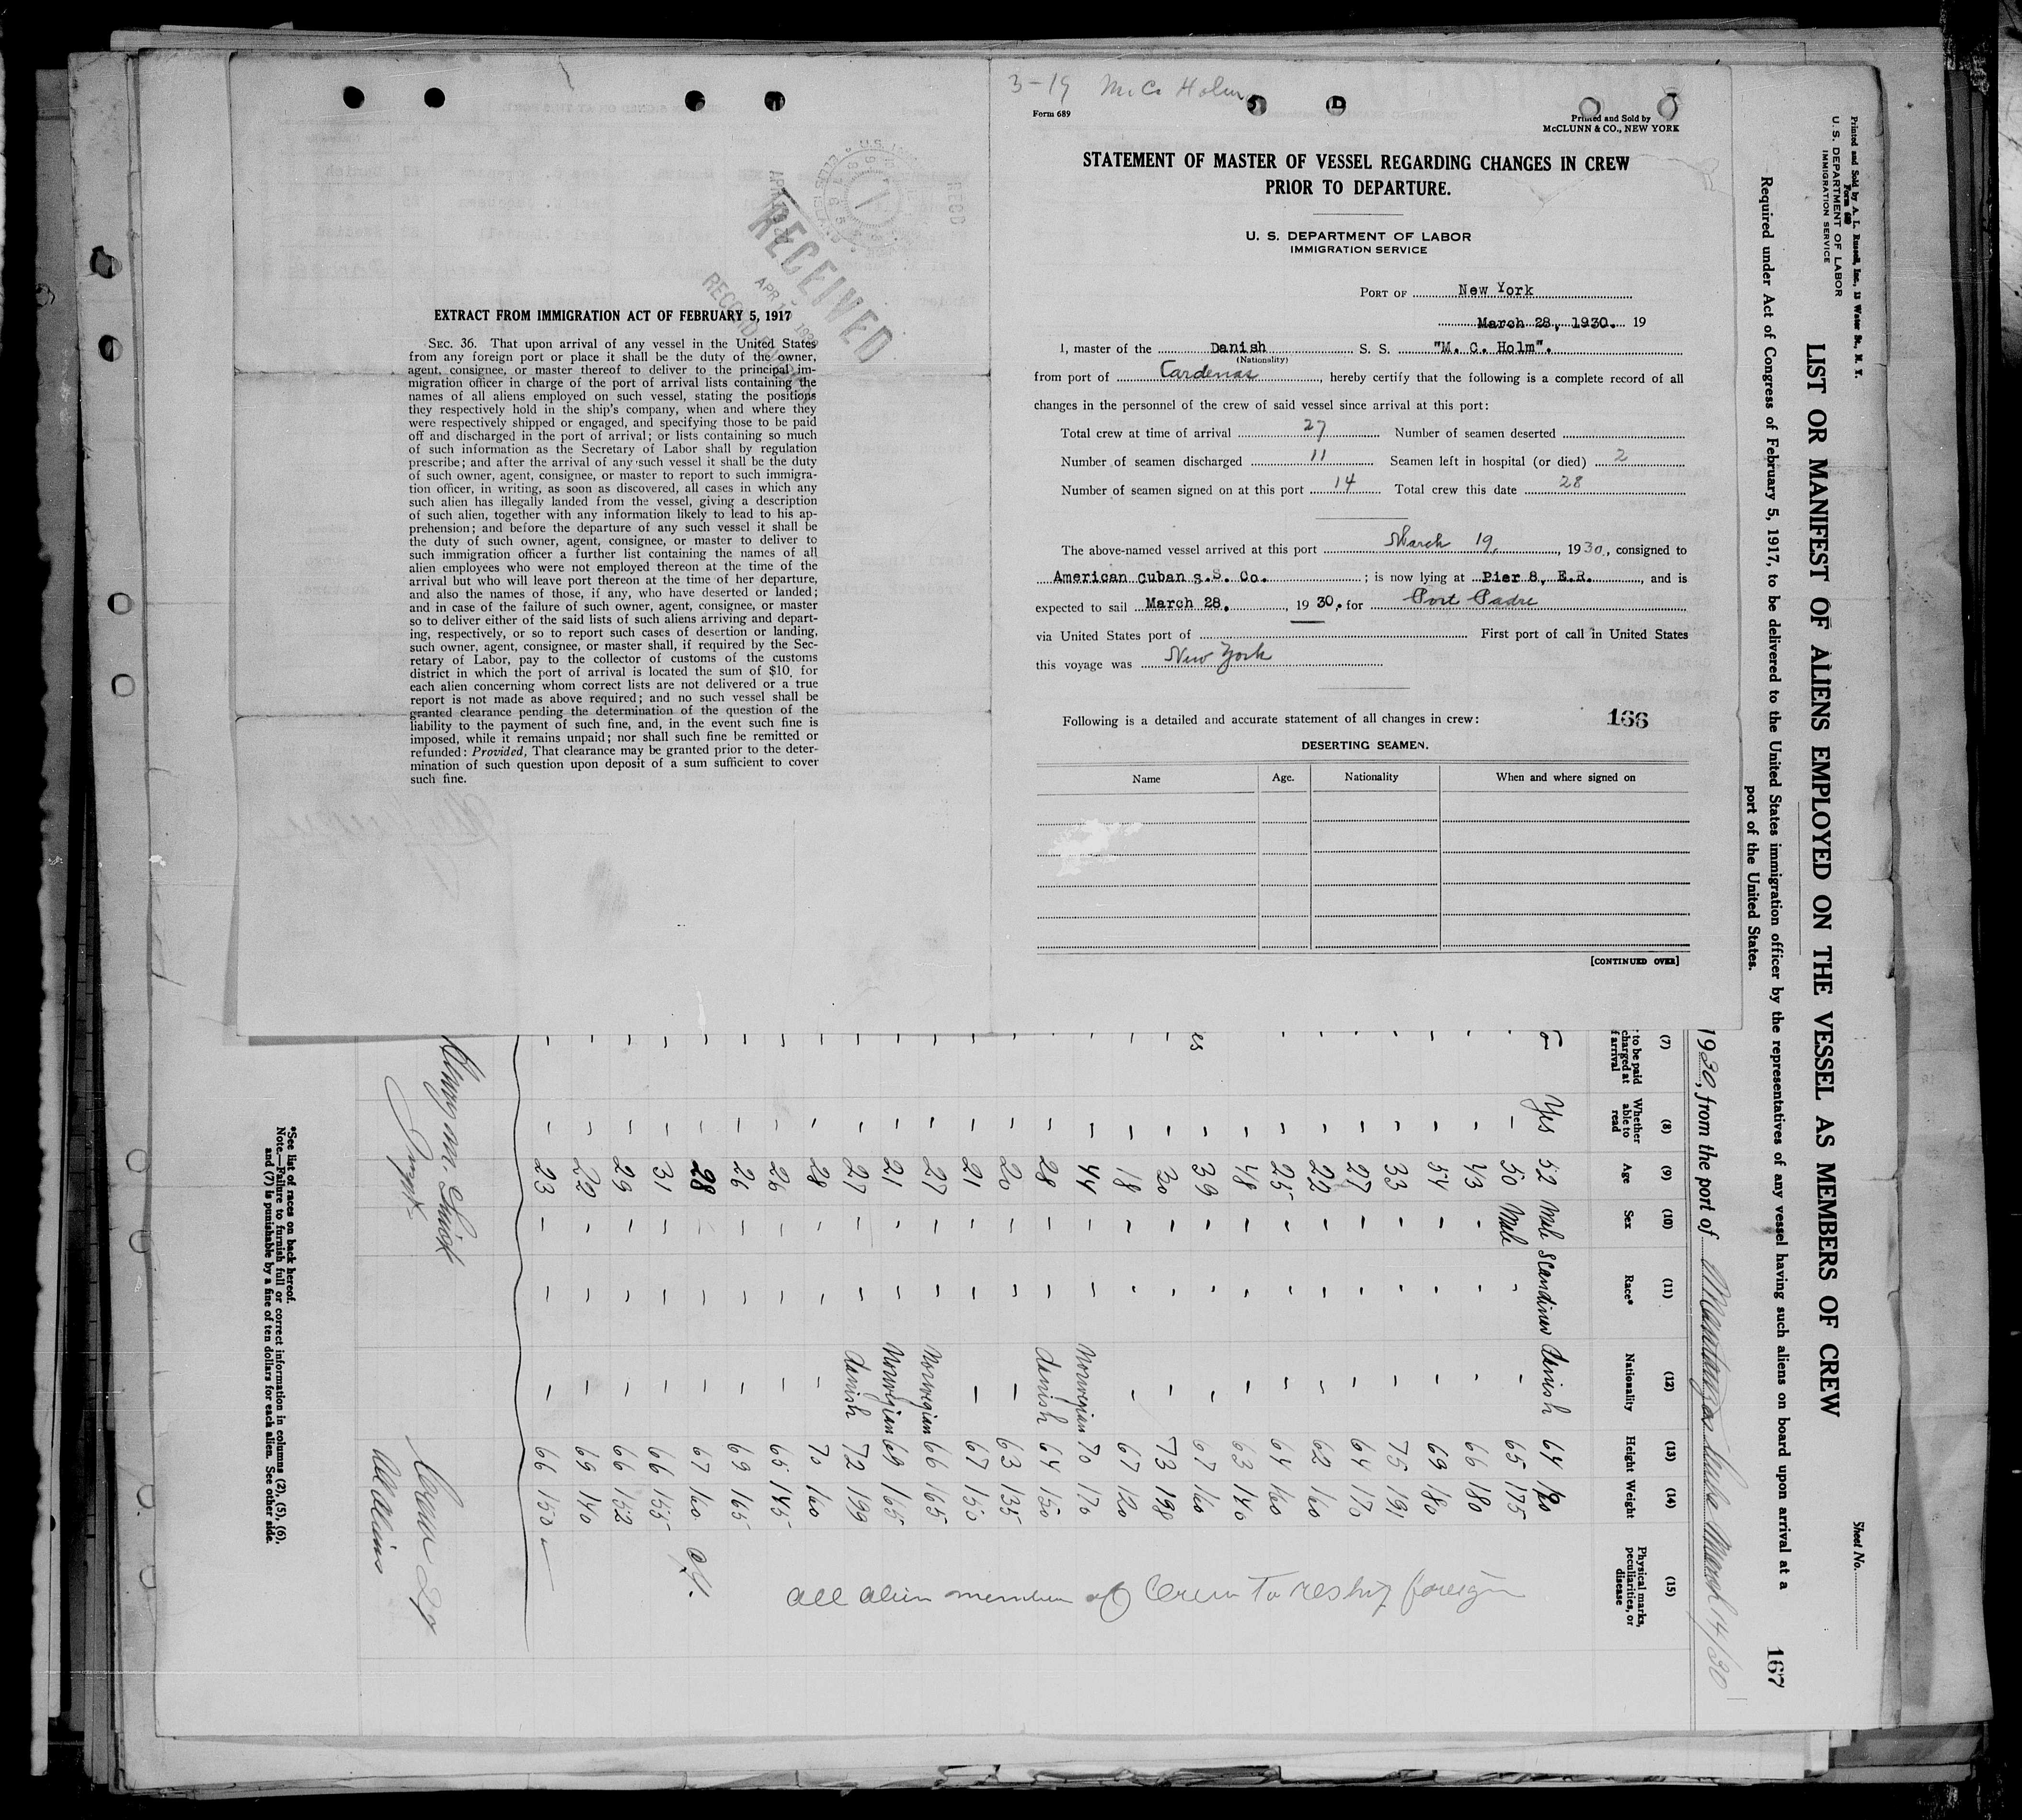 3-19 M.C. Holm
Form 689
Printed and Sold by
McCLUNN & CO., NEW YORK
STATEMENT OF MASTER OF VESSEL REGARDING CHANGES IN CREW
PRIOR TO DEPARTURE.
U. S. DEPARTMENT OF LABOR
IMMIGRATION SERVICE
PORT OF New York
March 28, 1930. 19
I, master of the Danish S. S. "M. C. Holm".
(Nationality)
from port of Cardenas, hereby certify that the following is a complete record of all
changes in the personnel of the crew of said vessel since arrival at this port:
Total crew at time of arrival 27 Number of seamen deserted
Number of seamen discharged 11 Seamen left in hospital (or died) 2
Number of seamen signed on at this port 14 Total crew this date 28
The above-named vessel arrived at this port March 19, 1930, consigned to
American Cuban S.S. Co. ; is now lying at Pier 8, E.R. , and is
expected to sail March 28, 1930. for Port Padre
via United States port of First port of call in United States
this voyage was New York
Following is a detailed and accurate statement of all changes in crew: 166
DESERTING SEAMEN.
Name Age. Nationality When and where signed on
[CONTINUED OVER]
RECEIVED
EXTRACT FROM IMMIGRATION ACT OF FEBRUARY 5, 1917
SEC. 36. That upon arrival of any vessel in the United States
from any foreign port or place it shall be the duty of the owner,
agent, consignee, or master thereof to deliver to the principal im-
migration officer in charge of the port of arrival lists containing the
names of all aliens employed on such vessel, stating the positions
they respectively hold in the ship's company, when and where they
were respectively shipped or engaged, and specifying those to be paid
off and discharged in the port of arrival; or lists containing so much
of such information as the Secretary of Labor shall by regulation
prescribe; and after the arrival of any such vessel it shall be the duty
of such owner, agent, consignee, or master to report to such immigra-
tion officer, in writing, as soon as discovered, all cases in which any
such alien has illegally landed from the vessel, giving a description
of such alien, together with any information likely to lead to his ap-
prehension; and before the departure of any such vessel it shall be
the duty of such owner, agent, consignee, or master to deliver to
such immigration officer a further list containing the names of all
alien employees who were not employed thereon at the time of the
arrival but who will leave port thereon at the time of her departure,
and also the names of those, if any, who have deserted or landed;
and in case of the failure of such owner, agent, consignee, or master
so to deliver either of the said lists of such aliens arriving and depart-
ing, respectively, or so to report such cases of desertion or landing,
such owner, agent, consignee, or master shall, if required by the Sec-
retary of Labor, pay to the collector of customs of the customs
district in which the port of arrival is located the sum of $10 for
each alien concerning whom correct lists are not delivered or a true
report is not made as above required; and no such vessel shall be
granted clearance pending the determination of the question of the
liability to the payment of such fine, and, in the event such fine is
imposed, while it remains unpaid; nor shall such fine be remitted or
refunded: Provided, That clearance may be granted prior to the deter-
mination of such question upon deposit of a sum sufficient to cover
such fine.
Printed and Sold by A. L. Russell, Inc., 13 Water St., N. Y.
Form 689
U. S. DEPARTMENT OF LABOR
IMMIGRATION SERVICE
Sheet No.
LIST OR MANIFEST OF ALIENS EMPLOYED ON THE VESSEL AS MEMBERS OF CREW
Required under Act of Congress of February 5, 1917, to be delivered to the United States immigration officer by the representatives of any vessel having such aliens on board upon arrival at a
port of the United States.
167
1930, from the port of March 14/30
(7) (8) (9) (10) (11) (12) (13) (14) (15)
to be paid
charged at
arrival
Whether able to read
Age
Sex
Race*
Nationality
Height
Weight
Physical marks, peculiarities, or disease
Yes 52 Male Scandinav Danish 64 120
- 50 Male - - 65 175
- 43 - - - 66 180
- 54 - - - 69 180
- 33 - - - 75 191
- 27 - - - 64 170
- 22 - - - 62 160
- 25 - - - 64 160
- 48 - - - 63 140
es - 39 - - - 67 160
- 30 - - - 73 198
- 18 - - - 67 120
- 44 - - Norwegian 70 170
- 28 - - danish 64 150
- 20 - - - 63 135
- 21 - - - 67 150
- 27 - - Norwegian 66 165
- 21 - - Norwegian 69 165
- 27 - - danish 72 199
- 28 - - - 70 160
- 26 - - - 65 145
- 26 - - - 69 165
- 28 - - - 67 160
- 31 - - - 66 155
- 29 - - - 66 152
- 22 - - - 69 140
- 23 - - - 66 150
all alien member of Crew to reship foreign
Crew 27
All aliens
*See list of races on back hereof.
Note.—Failure to furnish full or correct information in columns (2), (5), (6),
and (7) is punishable by a fine of ten dollars for each alien. See other side.